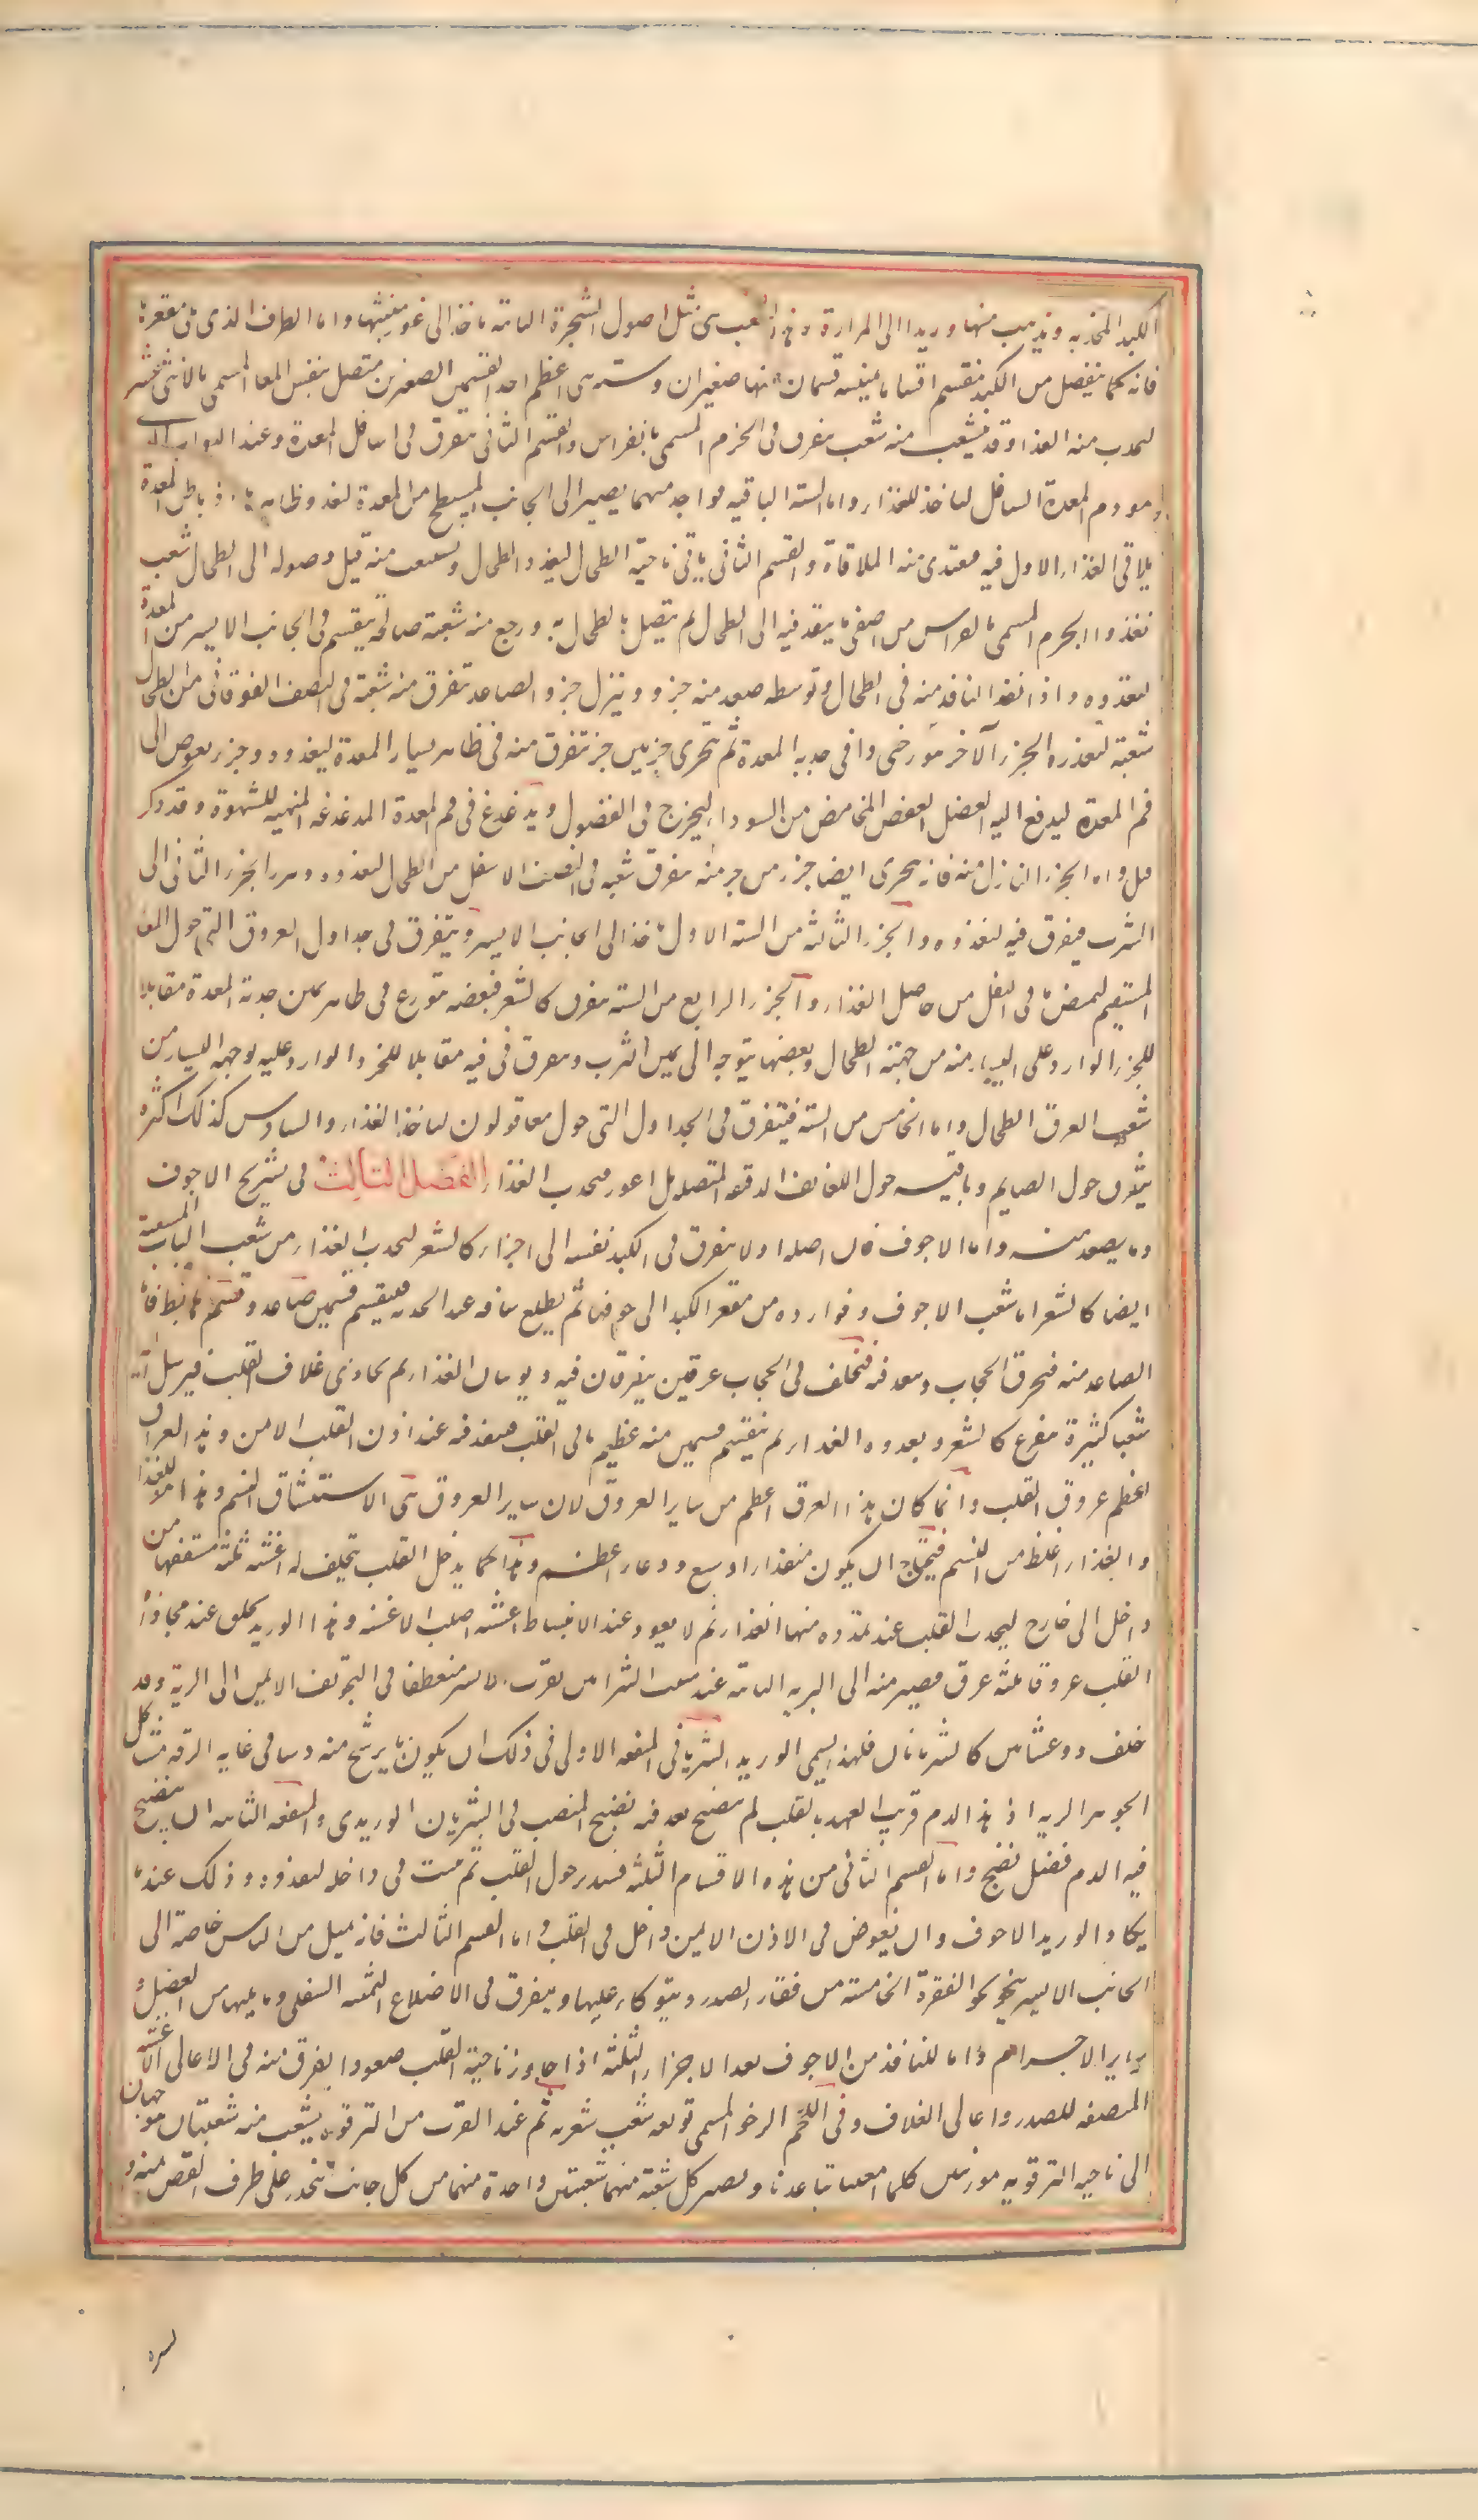 الكبد المحدبه ويذهب منها وريدا الى المرارة وهذه الشعب هى مثل اصول الشجرة النابته تاخذ الى غور منبتها واما الطرف الذى يلى مقعرها
فانه كما ينفصل من الكبد ينقسم اقساما ثمنيه قسمان منها صغيران وسته هى اعظم احد القسمين الصغيرين متصل بنفس المعا المسمى بالاثنى عشر
لجذب منه الغذا وقد يتشعب منه شعب يتفرق فى الجرم المسمى بانقراس والقسم الثانى يتفرق فى اسافل المعدة وعند البواب الذى
هو فم المعدة السافل لياخذ للغذاء واما الستة الباقيه فواحد منهما يصير الى الجانب المسطح من المعدة لغذو ظاهره اذ باطن المعدة
يلاقى الغذاء الاول فيه مغتدى منه الملاقاة والقسم الثانى ياتى ناحية الطحال ليغذو الطحال ويتشعب منه قبل وصوله الى الطحال شعب
تغذو الجرم المسمى بانقراس من اصفى ما ينفد فيه الى الطحال ثم يتصل بالطحال به ورجع منه شعبة صالحة ينقسم فى الجانب الايسر من المعدة
لتغذوه واذا نفذ النافذ منه فى الطحال وتوسطه صعد منه جزو وينزل جزو والصاعد تتفرق منه شعبة فى النصف الفوقانى من الطحال
شعبة لتغذوه والجزء الآخر وافى حدبه المعدة ثم تتجزى جزئين جزء تتفرق منه فى ظاهر يسار المعدة ليغذوه وجزء يغوص الى
فم المعدة ليدفع اليه الفضل العفص الحامض من السوداء ليخرج فى الفضول ويدغدغ فى فم المعدة الدغدغة المنبهة للشهوة وقد ذكر
قبل واما الجزء النازل منه فانه يتجزى ايضا جزءين جزء منه يتفرق شعبه فى النصف الاسفل من الطحال لتغذوه ويبرز الجزء الثانى الى
الثرب فيتفرق فيه لتغذوه والجزء الثالث من الستة الاول ياخذ الى الجانب الايسر ويتفرق فى جداول العروق التى حول المعا
المستقيم ليمتص ما فى الثفل من حاصل الغذاء والجزء الرابع من الستة يتفرق كالشعر فبعضه يتوزع فى ظاهر يمين حدبة المعدة مقابلا
للجزء الوارد على اليسار منه من جهة الطحال وبعضها يتوجه الى يمين الثرب ويتفرق فيه مقابلا للجزء الوارد عليه لوجهه اليسار من
شعب العرق الطحال واما الخامس من الستة فيتفرق فى الجداول التى حول معا قولون لياخذ الغذاء والسادس كذلك اكثره
يتفرق حول الصايم وباقيه حول اللفائف الدقيقة المتصلة بالاعور فيجذب الغذاء الفصل الثالث فى تشريح الاجوف
وما يصعد منه واما الاجوف فان اصله اولا يتفرق فى الكبد نفسه الى اجزاء كالشعر لتجذب الغذاء من شعب الباب المتشعبة
ايضا كالشعر اما شعب الاجوف فوارده من مقعر الكبد الى جوفها ثم يطلع ساقه عند الحدبه فينقسم قسمين صاعد وقسم هابط فاما
الصاعد منه فيخرق الحجاب وينفذ فيه فيخلف فى الحجاب عرقين يتفرقان فيه ويوتيان الغذاء ثم يحاذى غلاف القلب فيرسل اليه
شعبا كثيرة يتفرع كالشعر ويغذوه الغذاء ثم ينقسم قسمين منه عظيم ياتى القلب فينفذ فيه عند اذن القلب الايمن وهذا العرق
اعظم عروق القلب وانما كان هذا العرق اعظم من ساير العروق لان ساير العروق هى الاستنشاق النسيم وهذا هو للغذا
والغذاء اغلظ من النسيم فيحتاج ان يكون منفذه اوسع ووعاءه اعظم وهذا كما يدخل القلب يتخلف له اغشيه ثلثة مسقفها من
داخل الى خارج ليجذب القلب عند تمدده منها الغذاء ثم لا يعود عند الانبساط اغشيه اصلب الاغشيه وهذا الوريد يخلف عند محاذاة
القلب عروقا ثلثه عرق فيصير منه الى الريه النابته عند منبت الشرايين بقرب الايسر منعطفا فى التجويف الايمن الى الرية وقد
خلف ذو غشائين كالشريان فلهذا يسمى الوريد الشريانى المنفعه الاولى فى ذلك ان يكون ما يرشح منه دما فى غايه الرقه مشاكل
الجوهر الريه اذ هذا الدم قريب العهد بالقلب لم ينضج بعد فيه نضج المنصب فى الشريان الوريدى والمنفعه الثانيه ان ينضج
فيه الدم فضل نضج واما القسم الثانى من هذه الاقسام الثلثه فيستدير حول القلب ثم ينبت فى داخله لتغذوه وذلك عندما
يكاد الوريد الاجوف ان يغوص فى الاذن الايمن داخل فى القلب واما القسم الثالث فانه يميل من الناس خاصة الى
الجانب الايسر ينحو نحو الفقرة الخامسة من فقار الصدر ويتوكاء عليها ويتفرق فى الاضلاع الثمنيه السفلى وما يليها من العضل و
ساير الاجسام واما للنافذ من الاجوف بعد الاجزاء الثلثة اذا جاوز ناحية القلب صعودا يتفرق منه فى الاعالى الاغشية
المنصفه للصدر واعالى الغلاف وفى اللحم الرخو المسمى توثه شعب شعريه ثم عند القرب من الترقوه يتشعب منه شعبتان يتوجهان
الى ناحيه الترقوه كلما امعنا تباعدتا ويصير كل شعبة منهما شعبتين واحدة منهما من كل جانب ينحدر على طرف القص منه و